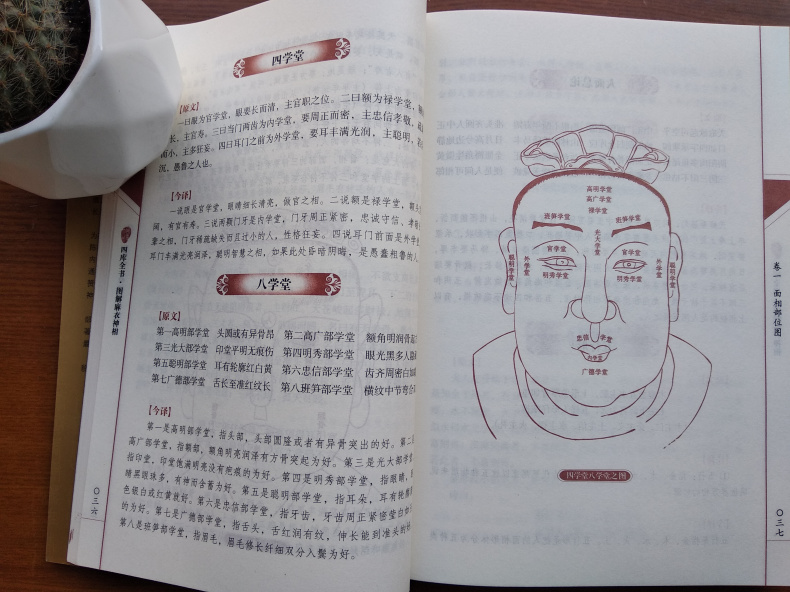 四学堂
【原文】
一曰眼为官学堂，眼要长而清，主官职之位。二曰额为禄学堂，额
长，主官寿。三曰当门两齿为内学堂，要周正而密，主忠信孝敬，疏
而小，主多狂妄。四曰耳门之前为外学堂，要耳丰满光润，主聪明，若
沉，愚鲁之人也。
【今译】
一说眼是官学堂，眼睛细长清亮，做官之相。二说额是禄学堂，额头
阔，有官有寿。三说两颗门牙是内学堂，门牙周正紧密，忠诚守信、孝敬
辈之相，门牙稀疏缺失而且过小的人，性格狂妄。四说耳门前面是外学堂
耳门丰满光亮润泽，聪明智慧之相，如果此处昏暗阴晦，是愚蠢粗鲁的人
八学堂
【原文】
第一高明部学堂 头圆或有异骨昂 第二高广部学堂 额角明润骨
第三光大部学堂 印堂平明无痕伤 第四明秀部学堂 眼光黑多人隐
第五聪明部学堂 耳有轮廓红白黄 第六忠信部学堂 齿齐周密白如
第七广德部学堂 舌长至准红纹长 第八班笋部学堂 横纹中节弯
【今译】
第一是高明部学堂，指头部，头部圆隆或者有异骨突出的好。第二
高广部学堂，指额部，额角明亮润泽有方骨突起为好。第三是光大部学
指印堂，印堂饱满明亮没有疤痕的为好。第四是明秀部学堂，指眼睛，
睛黑眼珠多，有神而含蓄为好。第五是聪明部学堂，指耳朵，耳有轮廓
色银白或红黄放好。第六是忠信部学堂，指牙齿，牙齿周正紧密莹白
的为好。第七是广德部学堂，指舌头，舌红润有纹，伸长能到准头的
第八是班笋部学堂，指眉毛，眉毛修长纤细双分入鬓为好。
四库全书·图解麻衣神相
〇三六
高明学堂
高广学堂
禄学堂
班笋学堂
班笋学堂
光大学堂
官学堂
官学堂
明秀学堂
明秀学堂
外学堂
外学堂
聪明学堂
聪明学堂
忠信学堂
内学堂
广德学堂
四学堂八学堂之图
卷一 面相部位图
〇三七